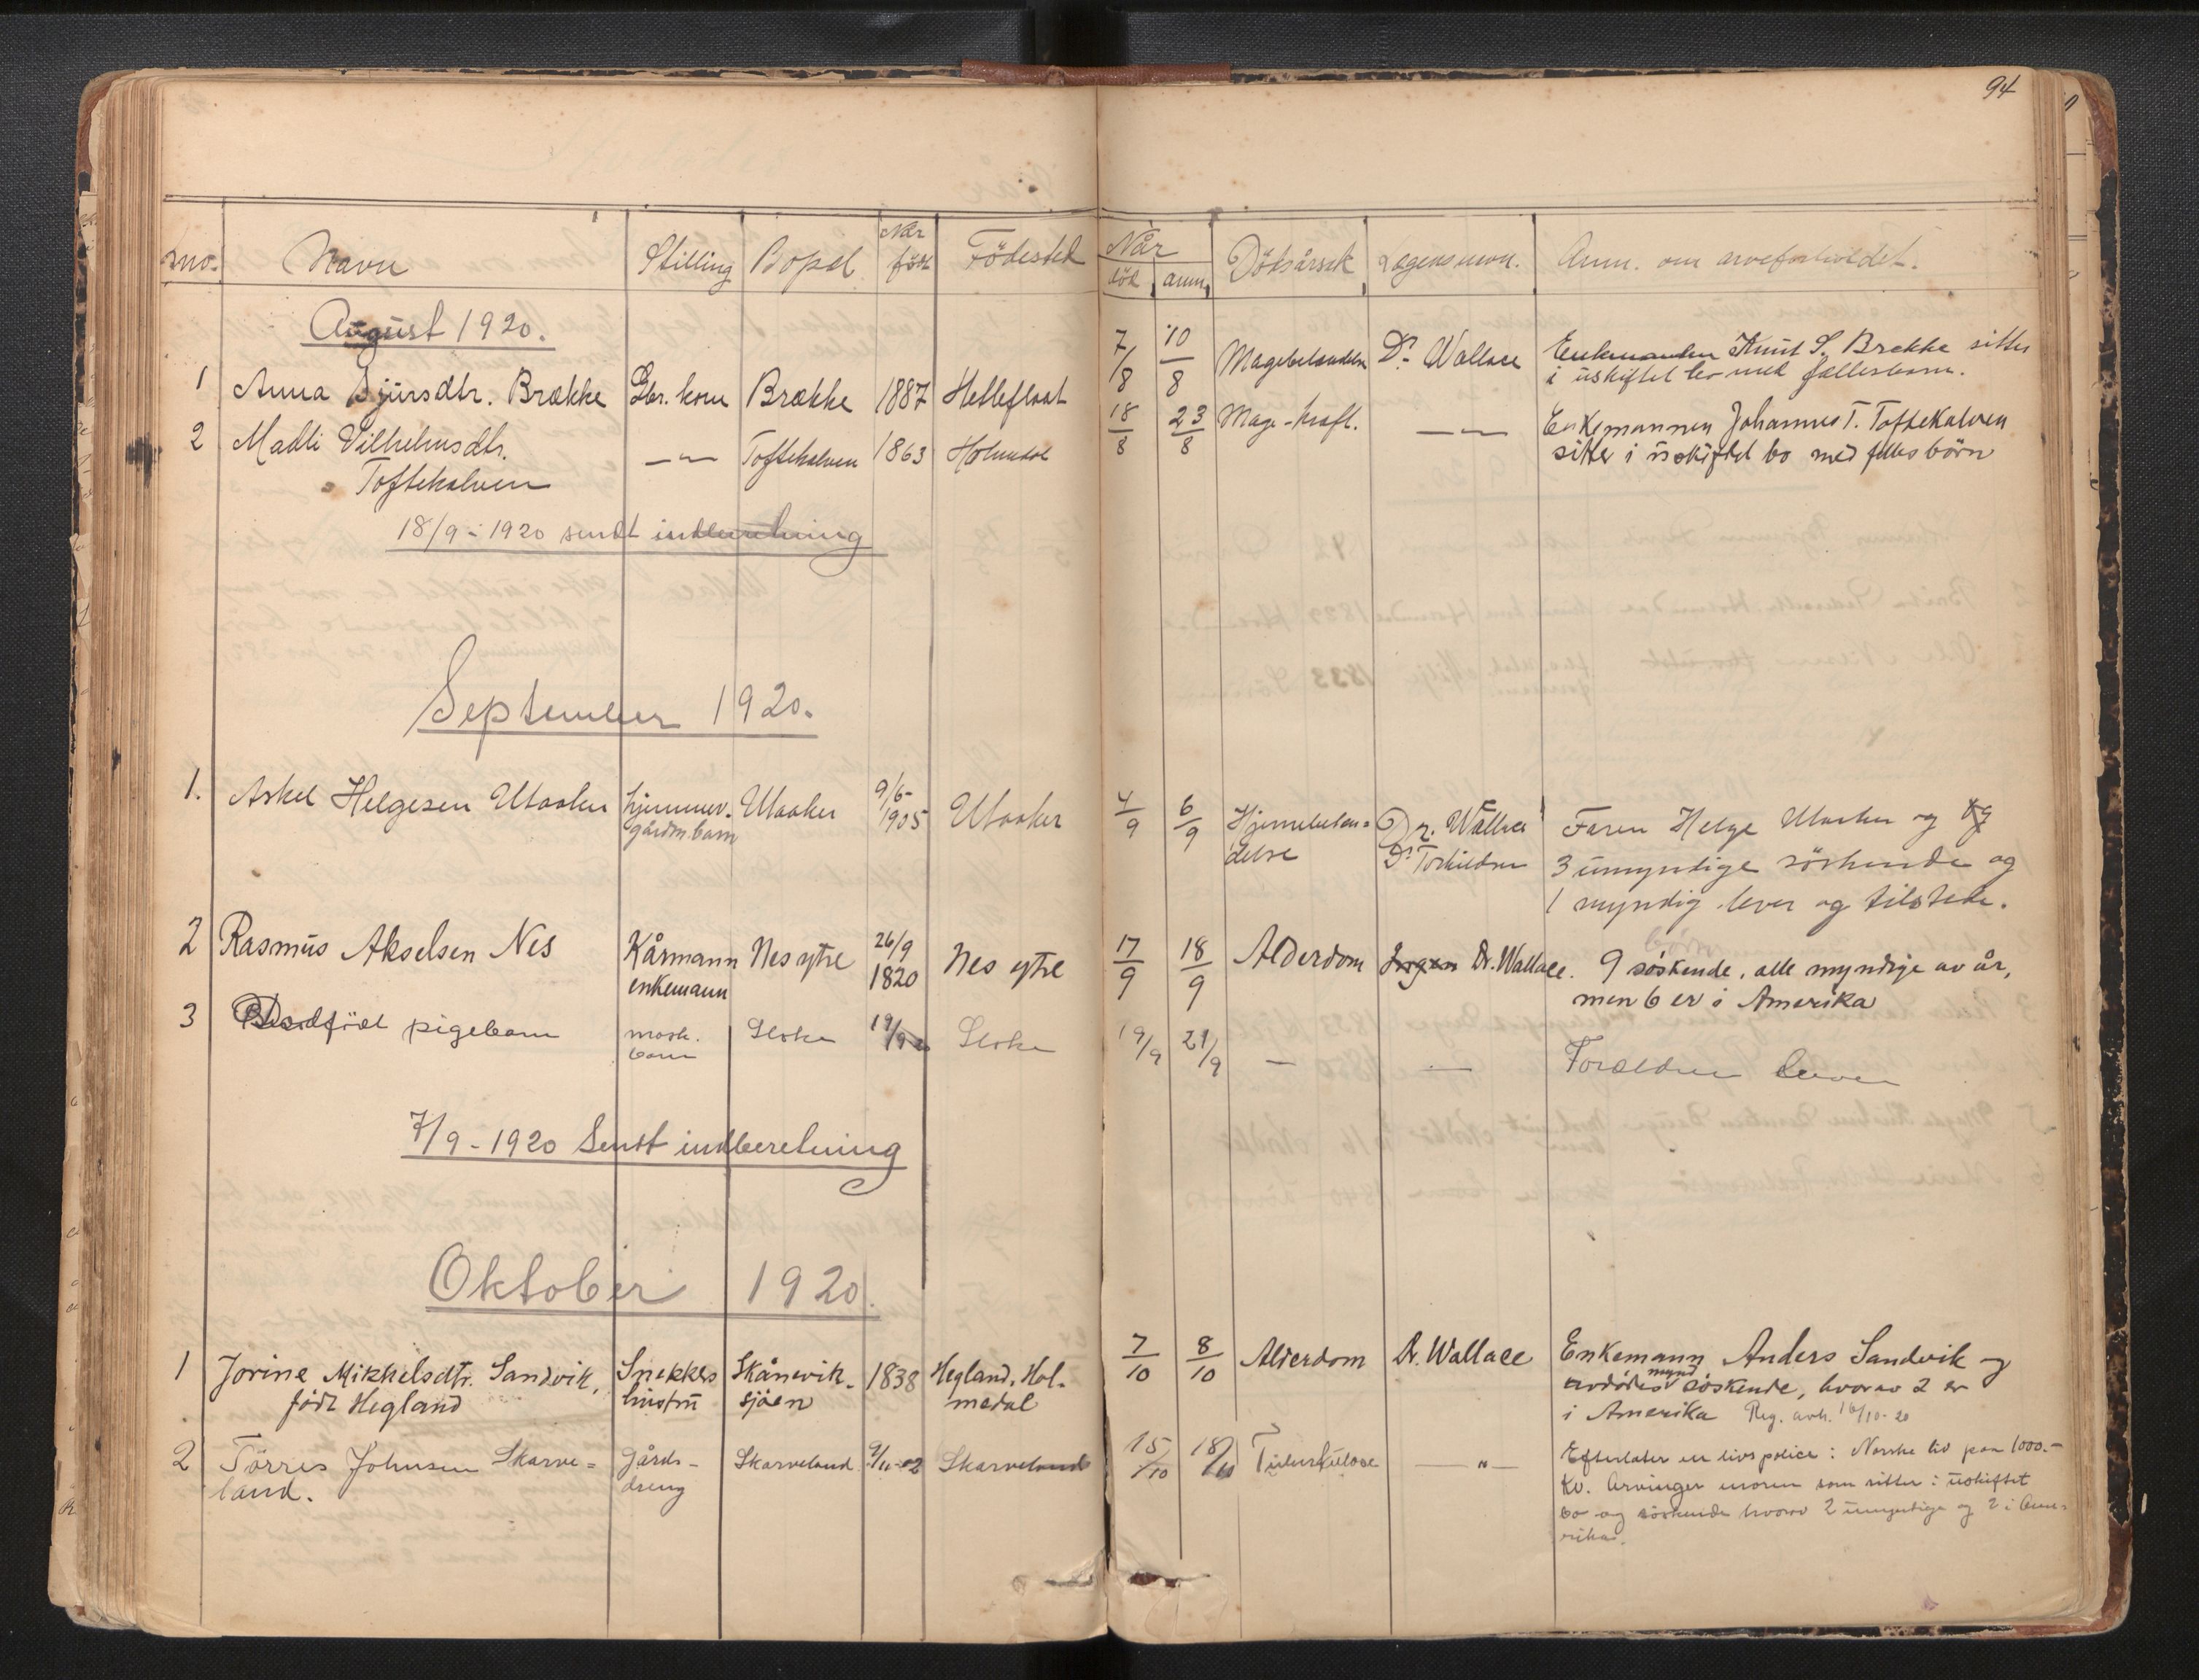 94
no. Navn Stilling Bopæl Når født Födested Når död anm. Dödsårsak Lægens navn. Anm. om arveforholdet.
August 1920.
1 Anna Sjursdtr. Brække Gbr. kone Brække 1887 Helleflaat 7/8 10/8 Magebetændelse Dr Wallace Enkemanden Knut S. Brekke sitter
i uskiftet bo med fællesbarn.
2 Madli Vilhelmsdtr. —"— Toftekalven 1863 Holmedal 18/8 23/8 Mage-kræft. —"— Enkemannen Johannes T. Toftekalven
Toftekalven sitter i uskiftet bo med felles börn
18/9 - 1920 sendt indberetning
September 1920.
1. Askel Helgesen Utaaker hjemmev. Utaaker 9/6- 1905 Utaaker 4/9 6/9 Hjernebetæn= Dr. Wallace Faren Helge Utaaker og
gårdm. barn delse Dr Torkildsen 3 umyndige söskende og
1 myndig lever og tilstede.
2 Rasmus Akselsen Nes Kårmann Nes ytre 26/9 1820 Nes ytre 17/9 18/9 Alderdom Ingen Dr. Wallace. 9 söskende börn, alle myndige av år,
enkemann men 6 er i Amerika
3 Dödföt pigebarn mask. Sloke 19/9 Sloke 19/9 21/9 — — Forældrene lever
barn
7/9 - 1920 Sendt indberetning
Oktober 1920.
1 Jorine Mikkelsdtr. Sandvik, Snekker Skånevik- 1838 Hegland, Hol- 7/10 8/10 Alderdom Dr. Wallace Enkemann Anders Sandvik og
födt Hegland hustru sjöen medal avdödes mynd. söskende, hvorav 2 er
i Amerika Reg. avh. 16/10-20
2 Törres Johnsen Skarve= Gårds- Skarveland 9/11-02 Skarveland 15/10 18/10 Tuberkulose —"— Efterlater en livspolice i Norske liv paa 1000.-
land. dreng Kr. Arvinger moren som sitter i uskiftet
bo og söskende hvorav 2 umyndige og 2 i Ame=
rika.